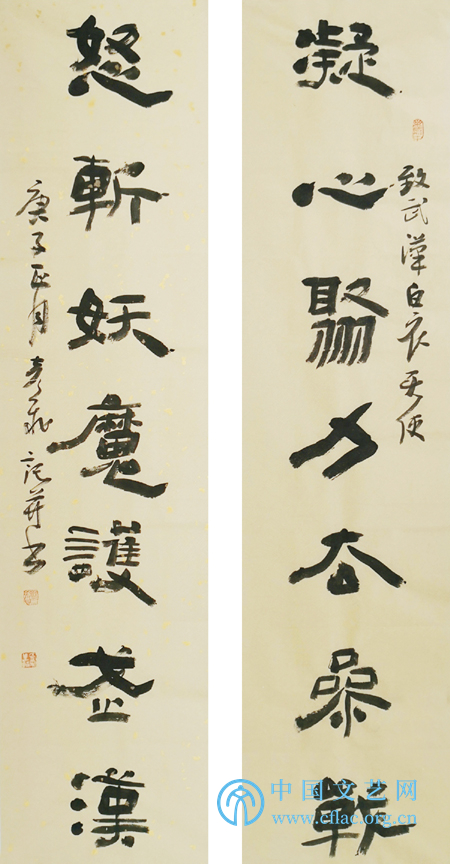 凝心聚力去參戰
致武漢白衣天使
怒斬妖魔護武漢
庚子正月 并书
中国文艺网
www.cflac.org.cn